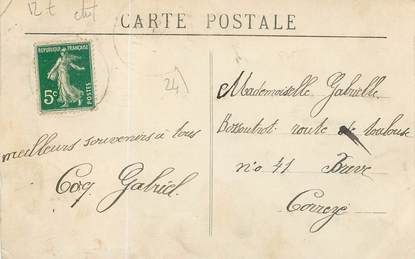 12 €
CARTE POSTALE
REPUBLIQUE FRANÇAISE
5c
POSTES
24
Mademoiselle Gabrielle
route de toulouse
n° 41 Brive
Correze
meilleurs souvenirs à tous
Coq Gabriel.